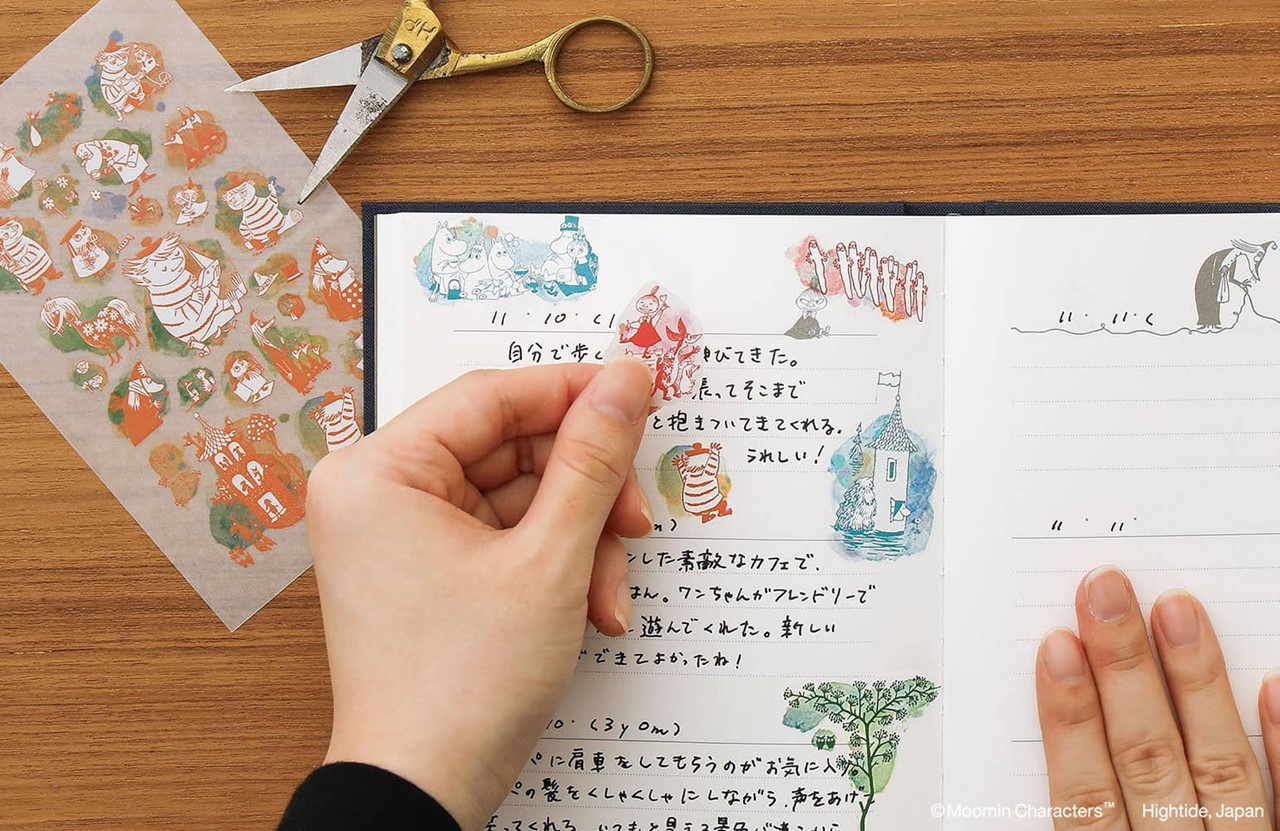 11 · 10 · (1
自分で歩く
びてきた。
張ってそこまで
と抱きついてきてくれる。
うれしい!
m)
した素敵なカフェで、
はん。ワンちゃんがフレンドリーで
遊んでくれた。新しい
できてよかったね!
10 · (3y0m)
に肩車をしてもらうのがお気に入り。
の髪をくしゃくしゃにしながら、声をあげ
ってくれる。いつもと見える景色が違うから
11 · 11 · (
11 · 11 ·
©Moomin Characters™ Hightide, Japan